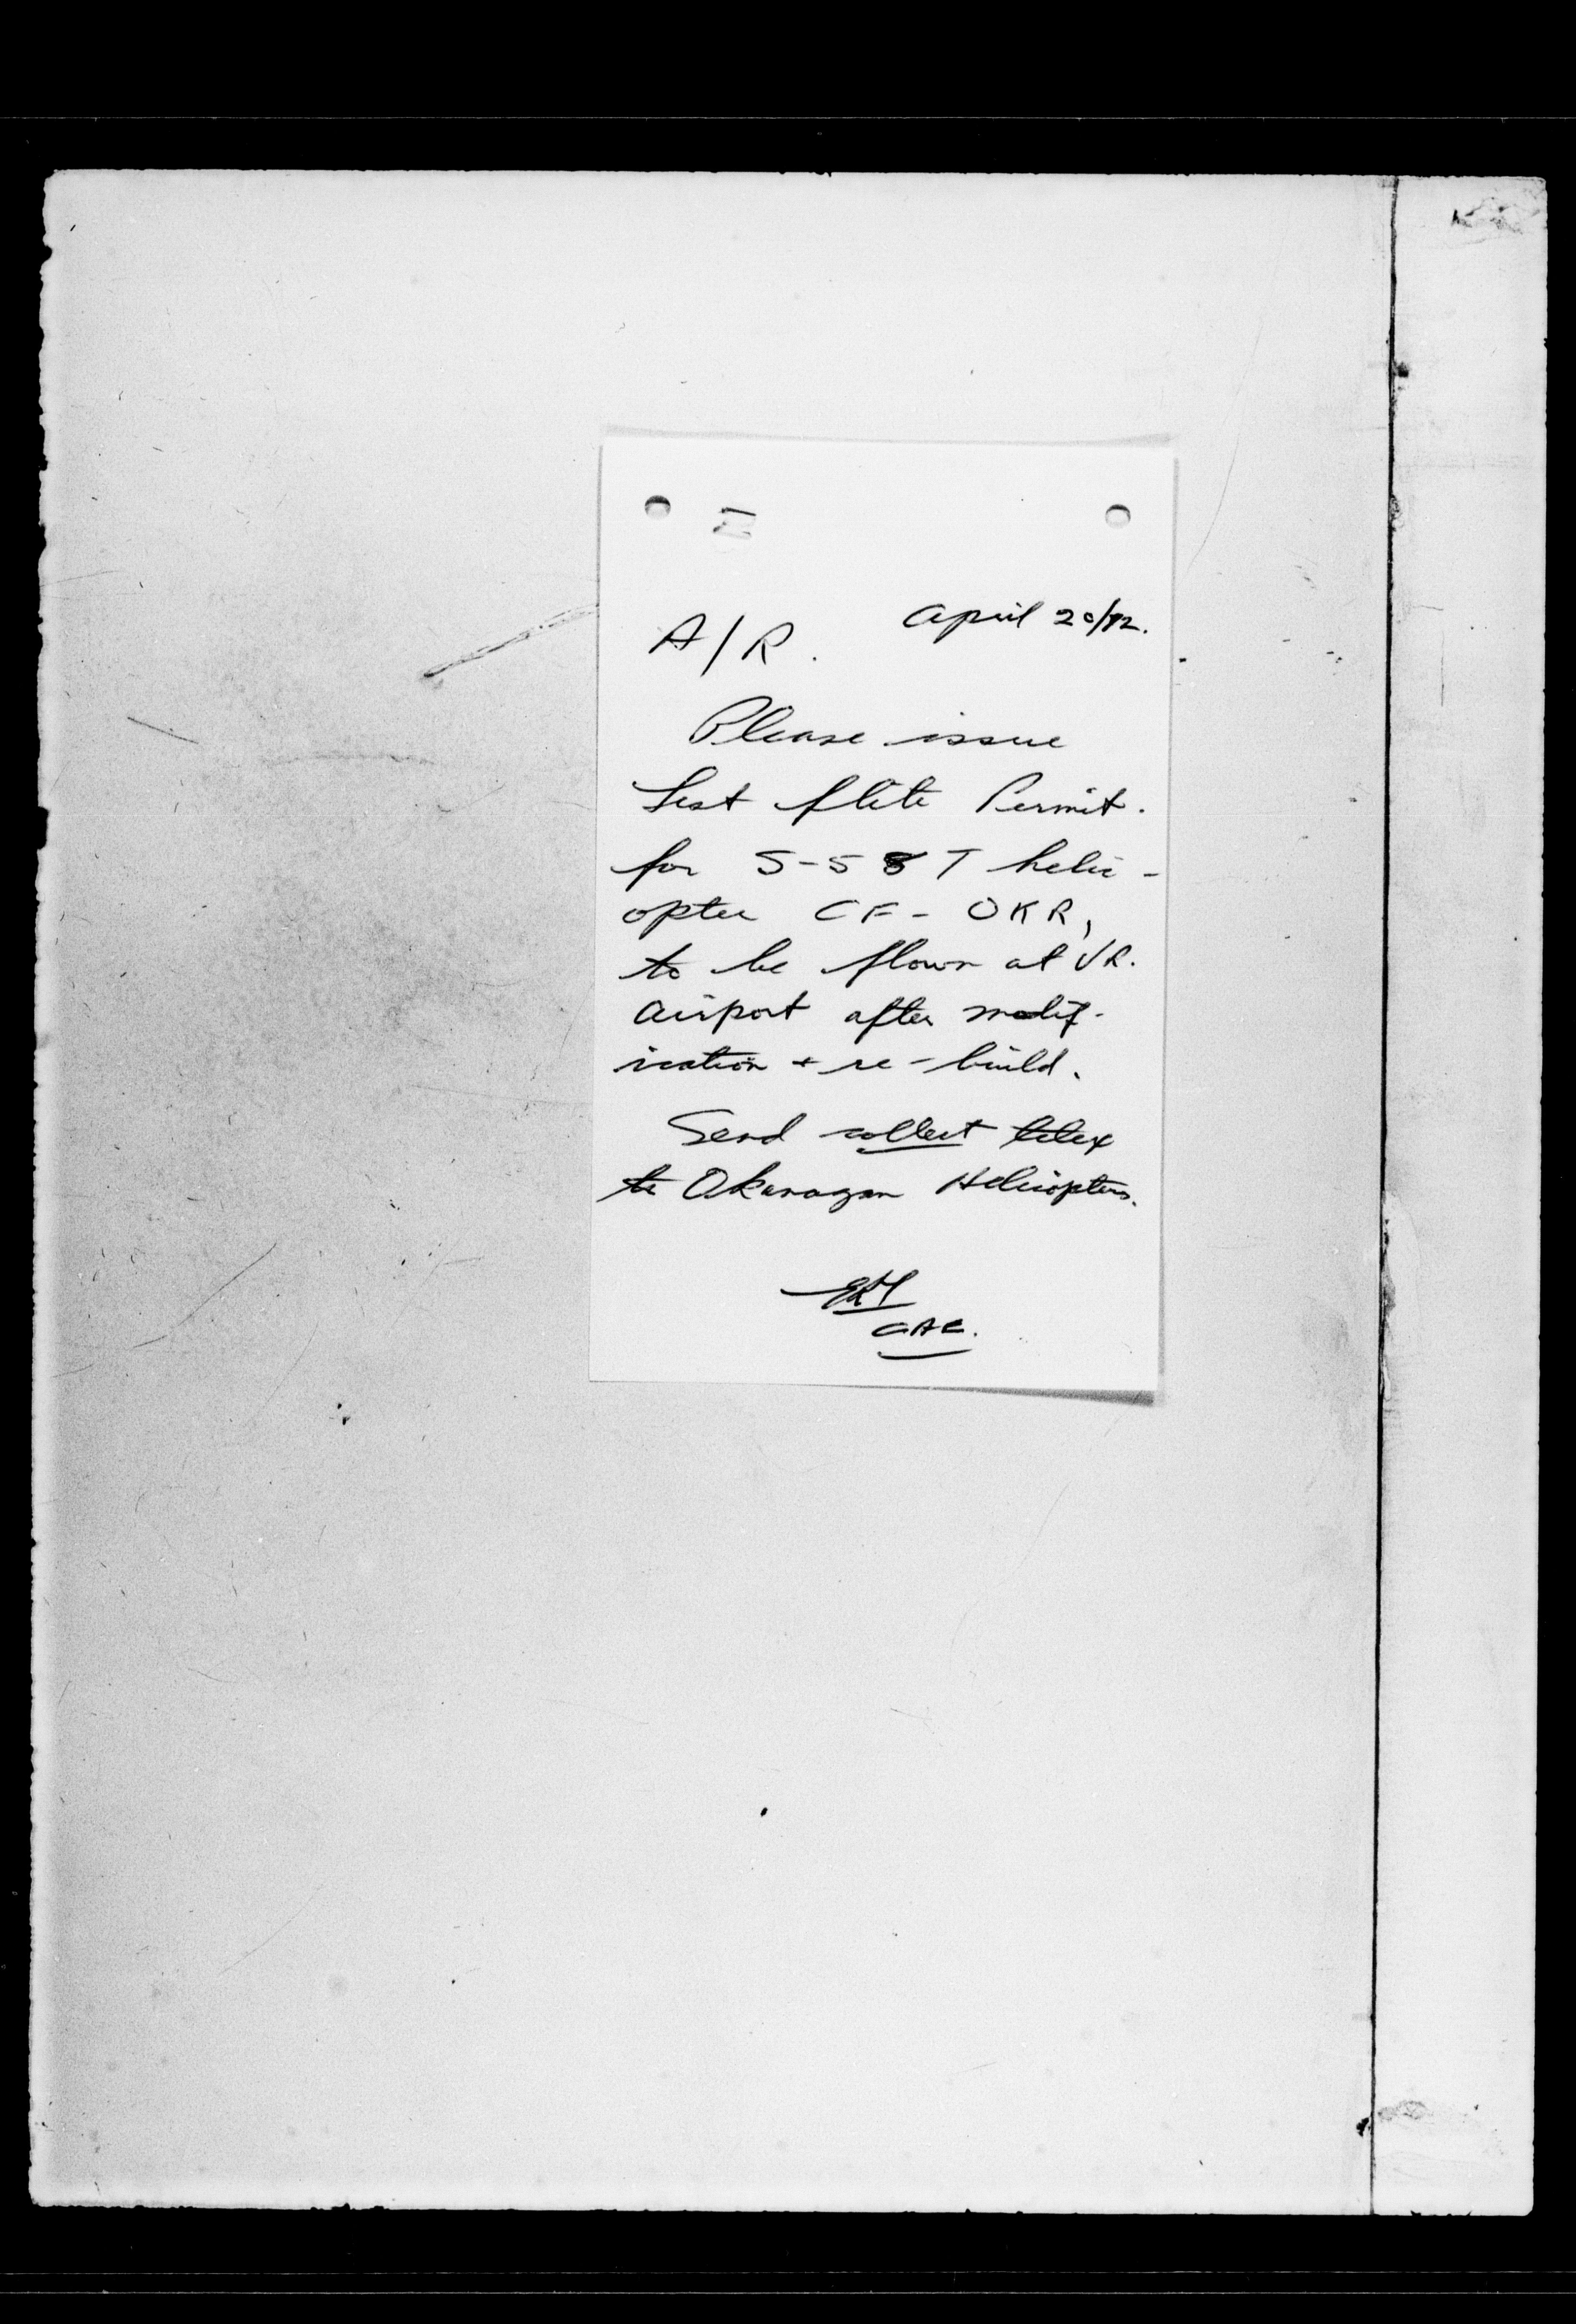 April 20/72.
A/R.
Please issue
test flite Permit.
for S-58T helic-
opter CF-OKR,
to be flown at VR.
Airport after modif-
ication + re-build.
Send collect telex
to Okanagan Helicopters.
CAC.